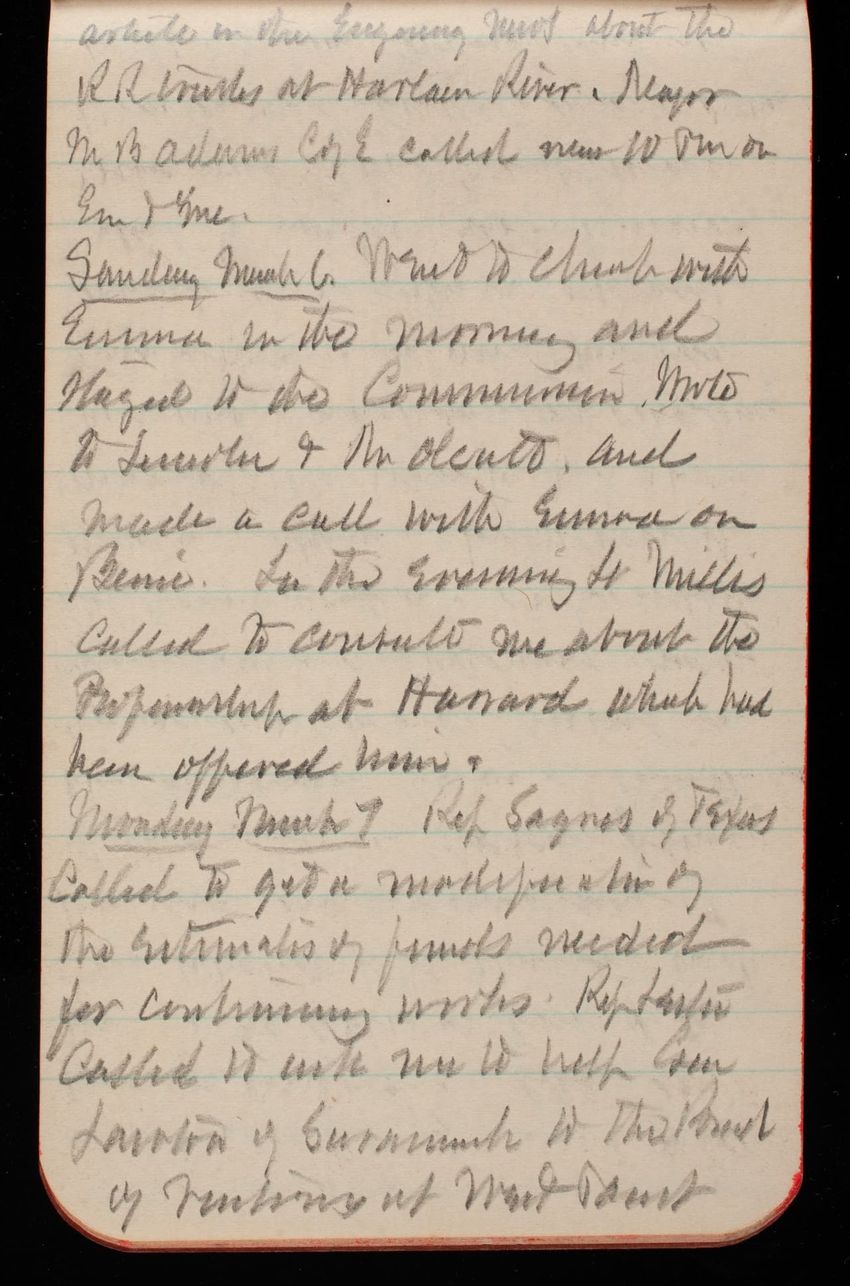 article in the Engineering News about the
R R bridges at Harlem River. Major
M B Adams C of E called near 10 PM on
Em & me.
Sunday March 6. Went to church with
Emma in the morning and
stayed to the Communion. Wrote
to Lincoln & Mr Olcott, and
made a call with Emma on
Bessie. In the evening Lt Millis
called to consult me about the
Professorship at Harvard which had
been offered him.
Monday March 7 Rep Sayres of Texas
called to get a modification of
the estimates of funds needed
for continuing works. Rep Lester
called to ask me to help Gen
Lawton of Savannah to the Board
of Visitors at West Point